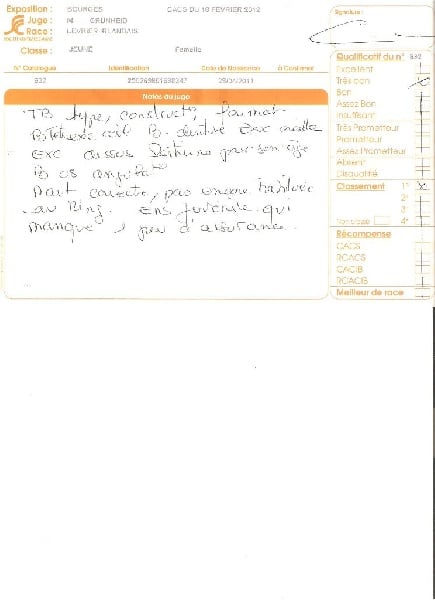 Exposition : BOURGES CACS DU 18 FEVRIER 2012
Juge : M GRUNHEID
Race : LEVRIER IRLANDAIS
Classe : JEUNE Femelle
N° Catalogue Identification Date de Naissance à Confirmer
832
Notes du juge
TB type, construct°, format.
B tête exc œil B dentité Exc oreille
Exc dessus pour son âge
B os angulat°
Part correcte, pas encore habituée
au Ring. Ens juvénile qui
manque 1 peu d'assurance.
Signature :
Qualificatif du n° 832
Excellent
Très bon X
Bon
Assez Bon
Insuffisant
Très Prometteur
Prometteur
Assez Prometteur
Absent
Disqualifié
Classement 1° X
2°
3°
Non classé 4°
Récompense
CACS
RCACS
CACIB
RCACIB
Meilleur de race